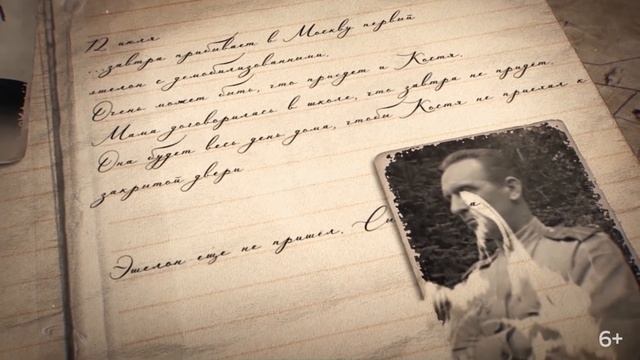 12 июля
...завтра прибывает в Москву первый
эшелон с демобилизованными.
Очень может быть, что приедет и Костя.
Мама договорилась в школе, что завтра не придет.
Она будет весь день дома, чтобы Костя не приехал к
закрытой двери
Эшелон еще не пришел.
6+